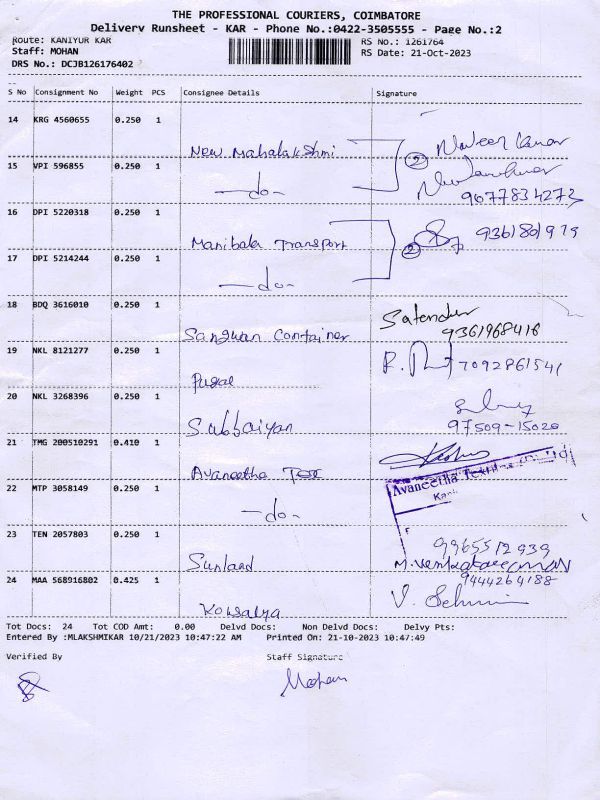 THE PROFESSIONAL COURIERS, COIMBATORE
Delivery Runsheet - KAR - Phone No.:0422-3505555 - Page No.:2
Route: KANIYUR KAR RS No.: 1261764
Staff: MOHAN RS Date: 21-Oct-2023
DRS No.: DCJB126176402
S No Consignment No Weight PCS Consignee Details Signature
14 KRG 4560655 0.250 1
New Mahalakshmi 2 Naveen Kumar
15 VPI 596855 0.250 1
-do- 9677834273
16 DPI 5220318 0.250 1
Manibala Transport 2 9361801979
17 DPI 5214244 0.250 1
-do-
18 BDQ 3616010 0.250 1 Satender
Sangwan Container 9361968418
19 NKL 8121277 0.250 1
Pugal 7092861541
20 NKL 3268396 0.250 1
Subbaiyan 97509-15020
21 TMG 200510291 0.410 1
Avaneetha Tex
22 MTP 3058149 0.250 1 Avaneetha Textiles Ltd
-do-
23 TEN 2057803 0.250 1 9965512939
Sunland M. Venkataraman
24 MAA 568916802 0.425 1 9444264188
Kowsalya
Tot Docs: 24 Tot COD Amt: 0.00 Delvd Docs: Non Delvd Docs: Delvy Pts:
Entered By :MLAKSHMIKAR 10/21/2023 10:47:22 AM Printed On: 21-10-2023 10:47:49
Verified By Staff Signature
Mohan